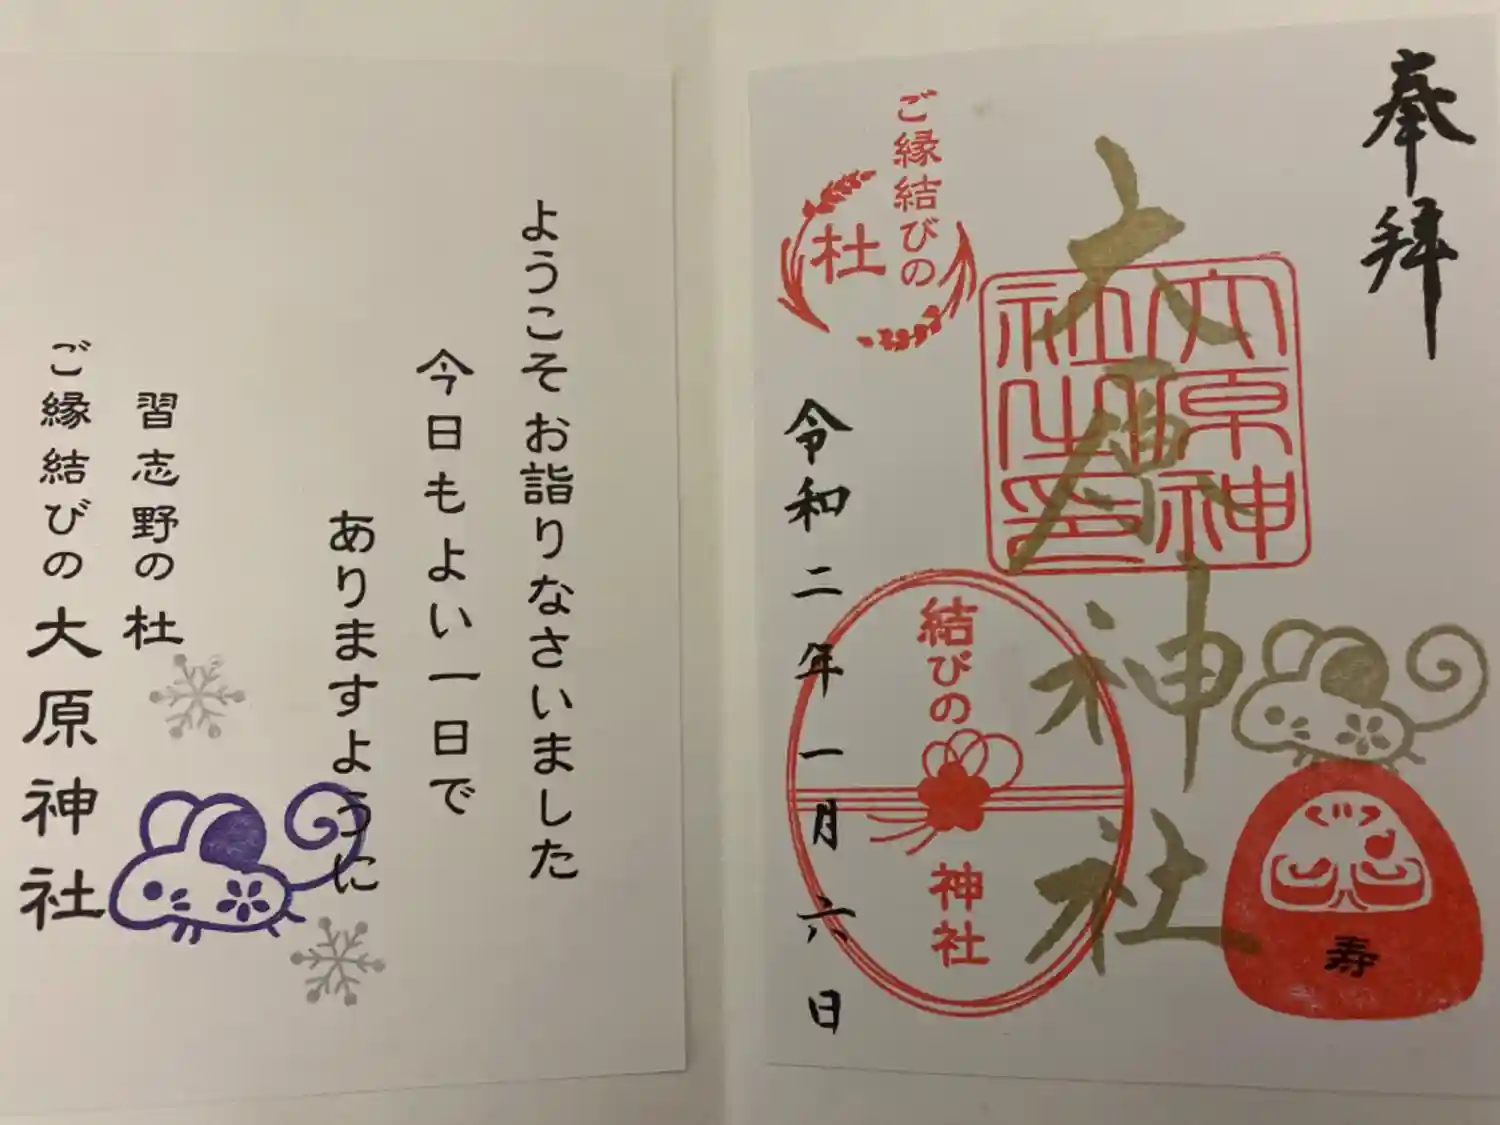 奉拝
大原神社
大原神社之印
ご縁結びの
杜
結びの
神社
寿
令和二年一月六日
ようこそお詣りなさいました
今日もよい一日で
ありますように
習志野の杜
ご縁結びの大原神社